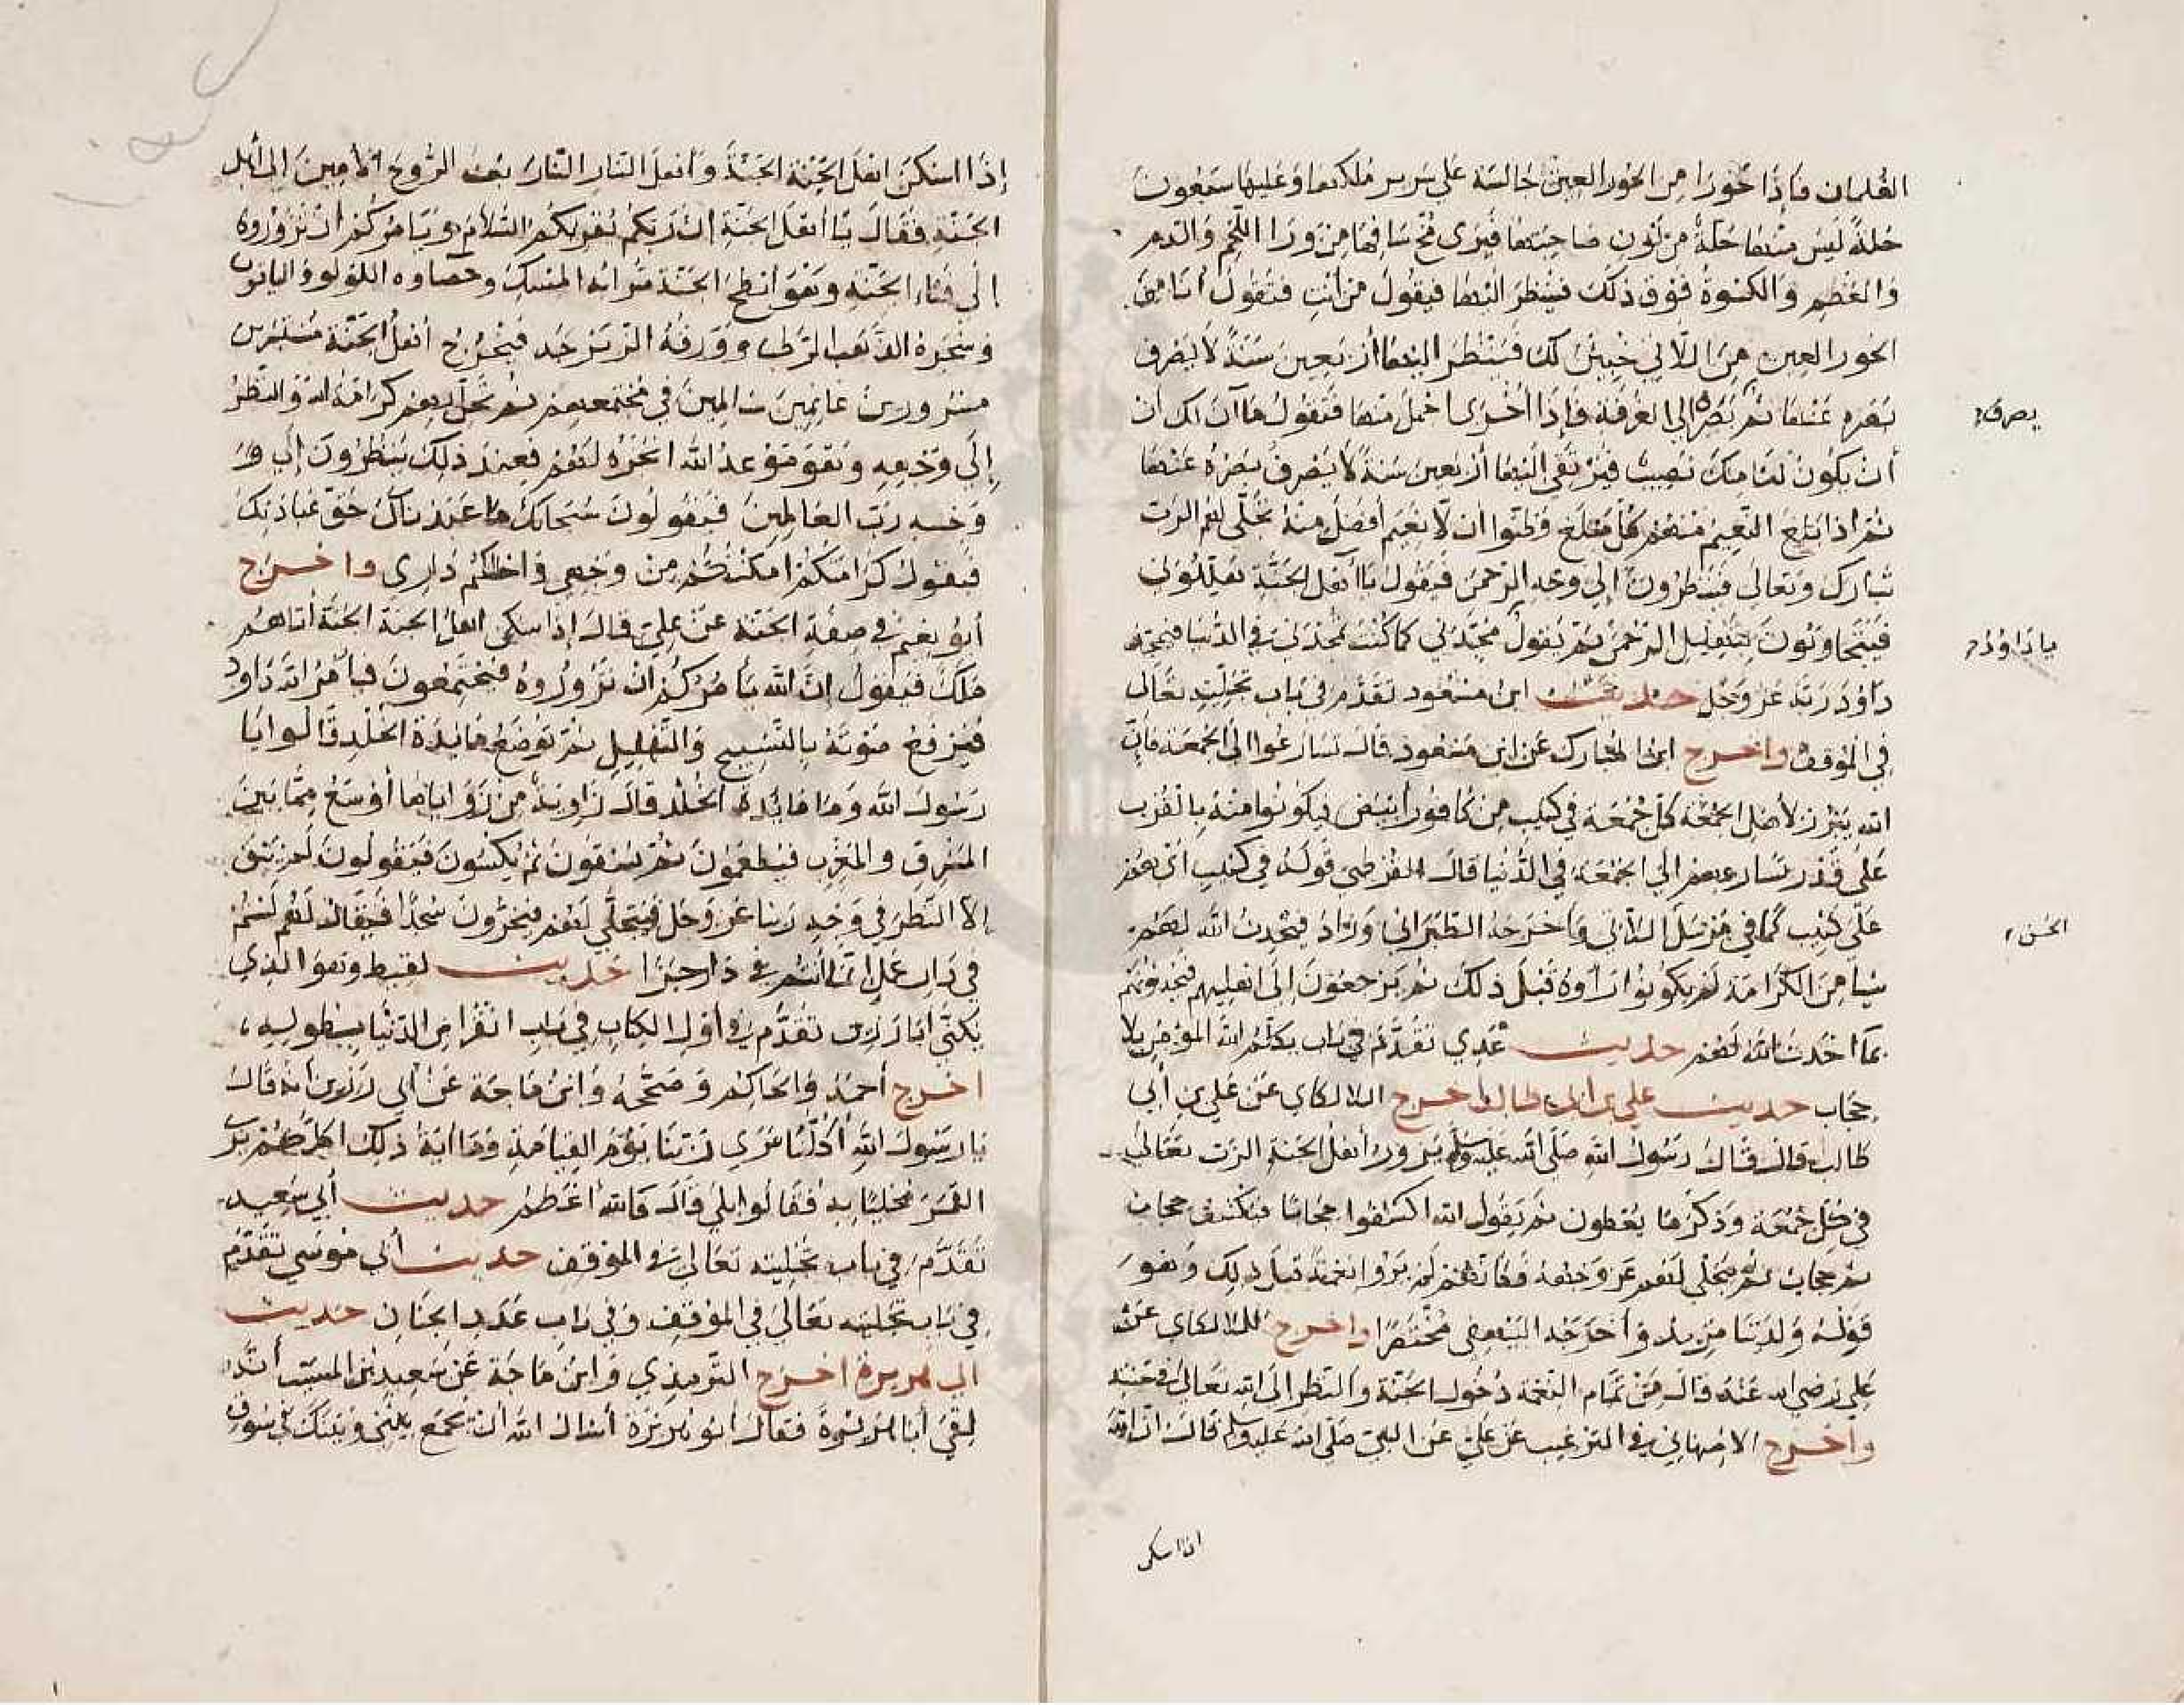 الغلمان فإذا حورا من الحور العين جالسة على سرير ملكها وعليها سبعون
حلةً ليس منها حلةٌ من لون صاحبتها فيرى مخ ساقها من ورا اللحم والدم
والعظم والكسوة فوق ذلك فينظر اليها فيقول من أنتِ فتقول أنا من
الحور العين من اللاتي خبين لك فينظر اليها أربعين سنةً لا يصرف
بصره عنها ثم بصره إلى الغرفة فإذا أخرى اجمل منها فتقول ما آن لك ان
أن يكون لنا منك نصيب فيرتقي اليها أربعين سنة لا يصرف بصره عنها
ثم اذا بلغ النعيم منهم كل مبلغ وظنوا ان لا نعيم أفضل منه تجلى لهم الرب
تبارك وتعالى فينظرون إلى وجه الرحمن فيقول يا أهل الجنة هللوني
فيتجاوبون بتهليل الرحمن ثم يقول مجدني كما كنت تمجدني في الدنيا فيمجد
داود ربه عز وجل حديث ابن مسعود تقدم في باب تجليه تعالى
في الموقف واخرج ابن المبارك عن ابن مسعود قال تسارعوا الى الجمعة فان
الله يبرز لأهل الجمعة كل جمعة في كثيب من كافور أبيض فيكونوا منه بالقرب
على قدر تسارعهم إلي الجمعة في الدنيا قال القرطبي قوله في كثيب اي هم
على كثيب كما في مرسل الثاني وأخرجه الطبراني وزاد فيحدث الله لهم
شيا من الكرامة لم يكونوا رأوه قبل ذلك ثم يرجعون إلى اهليهم فيحدثونهم
بما احدث الله لهم حديث عدي تقدم في باب يكلم الله المؤمن بلا
حجاب حديث علي بن ابي طالب اخرج اللالكاي عن علي بن أبي
طالب قال قال رسول الله صلى الله عليه وسلم يزور أهل الجنة الرب تعالى
في كل جمعة وذكر ما يعطون ثم يقول الله اكشفوا حجابا فيكشف حجاب
ثم حجاب ثم يتجلى لهم عن وجهه فكأنهم لم يروا نعمة قبل ذلك وهو
قوله ولدينا مزيد وأخرجه البيهقي مختصرا واخرج اللالكاي عن
علي رضي الله عنه قال من تمام النعمة دخول الجنة والنظر الى الله تعالى في جنته
واخرج الاصبهاني في الترغيب عن علي عن النبي صلى الله عليه وسلم قال ان الله
يصرف
يا داود
الحسن
اذا اسكن
إذا اسكن اهل الجنة الجنة وأهل النار النار بعث الروح الأمين إلى أهل
الجنة فقال يا أهل الجنة ان ربكم يقريكم السلام ويأمركم أن تزوروه
إلى فناء الجنة وهو أبطح الجنة ترابه المسك وحصاوه اللولو والياقوت
وشجره الذهب الرطب وورقه الزبرجد فيخرج أهل الجنة مستبشرين
مسرورين غانمين سالمين في مجتمعهم ثم تحل بهم كرامة الله والنظر
إلى وجهه وهو موعد الله انجزه لهم فعند ذلك ينظرون إلى
وجه رب العالمين فيقولون سبحانك ما عبدناك حق عبادتك
فيقول كرامتكم امكنتكم من وجهي واحللتكم داري واخرج
أبو نعيم في صفة الجنة عن علي قال إذا سكن اهل الجنة الجنة أتاهم
ملك فيقول إن الله يأمركم ان تزوروه فيجتمعون فيأمر الله داود
فيرفع صوته بالتسبيح والتهليل ثم توضع مايدة الخلد قالوا يا
رسول الله وما مايدة الخلد قال زاوية من زواياها أوسع مما بين
المشرق والمغرب فيطعمون ثم يسقون ثم يكسون فيقولون لم يبق
إلا النظر في وجه ربنا عز وجل فيتجلى لهم فيخرون سجدا فيقال لهم لستم
في دار عمل انما أنتم في دار جزا حديث لقيط وهو الذي
يكنى أبا رزين تقدم في أول الكتاب في باب انقراض الدنيا بطوليه
اخرج أحمد والحاكم وصححه وابن ماجة عن أبي رزين أنه قال
يا رسول الله أكلنا يرى ربنا يوم القيامة وما اية ذلك اكلكم يرى
القمر مخليا به فقالوا بلى قال فالله اعظم حديث أبي سعيد
تقدم في باب تجليه تعالى في الموقف حديث أبي موسى تقدم
في باب تجليه تعالى في الموقف وفي باب عدد الجنان حديث
ابي هريرة اخرج الترمذي وابن ماجة عن سعيد بن المسيب أنه
لقي أبا هريرة فقال ابو هريرة أسال الله أن يجمع بيني وبينك في سوق